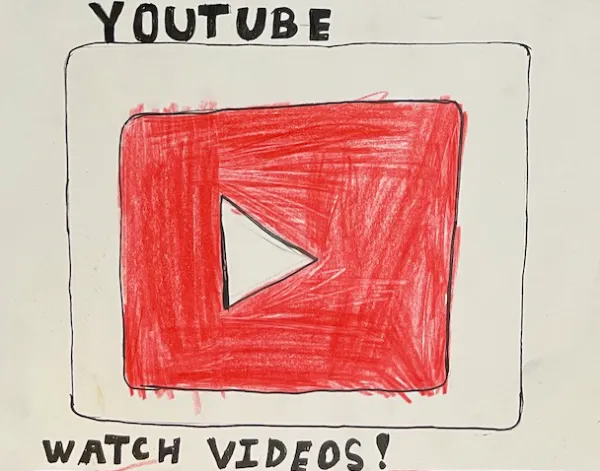 YOUTUBE
WATCH VIDEOS!